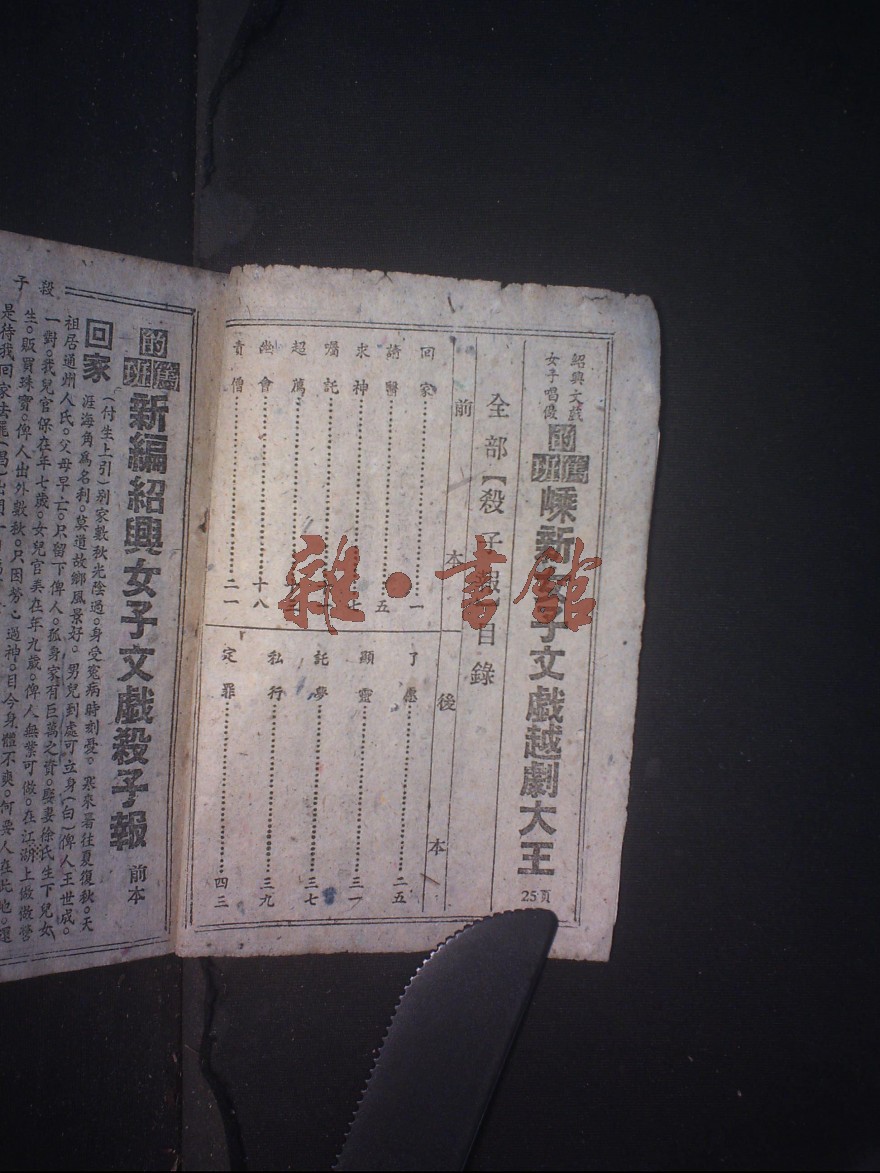 紹興文戲
女子唱傻
的篤班
嵊新女子文戲越劇大王
25頁
全部【殺子報】目錄
前本
回家……一
請醫……五
求神……七
囑託
超薦
幽會……十八
責僧……二一
後本
了愿……二五
顯靈……三一
託夢……三七
私行……三九
定罪……四三
雜·書館
殺子
的篤班
新編紹興女子文戲殺子報
前本
回家
(付生上引)别家數秋光陰過。身受冤病時刻憂。寒來暑往夏復秋。天
涯海角為名利。莫道故鄉風景好。男兒到處可立身(白)俾人王世成。
祖居通州人氏。父母早亡。只留下俾人。孤身家有巨萬之資。娶妻徐氏生下兒女
一對。我兒官保在年七歲。女兒官美在年九歲。俾人無業可做。在江湖上做做營
生。販買珠寶。俾人出外數秋。只因勞心過神。目今身體不爽。何要人在此地。還
是待我回家去罷(唱)